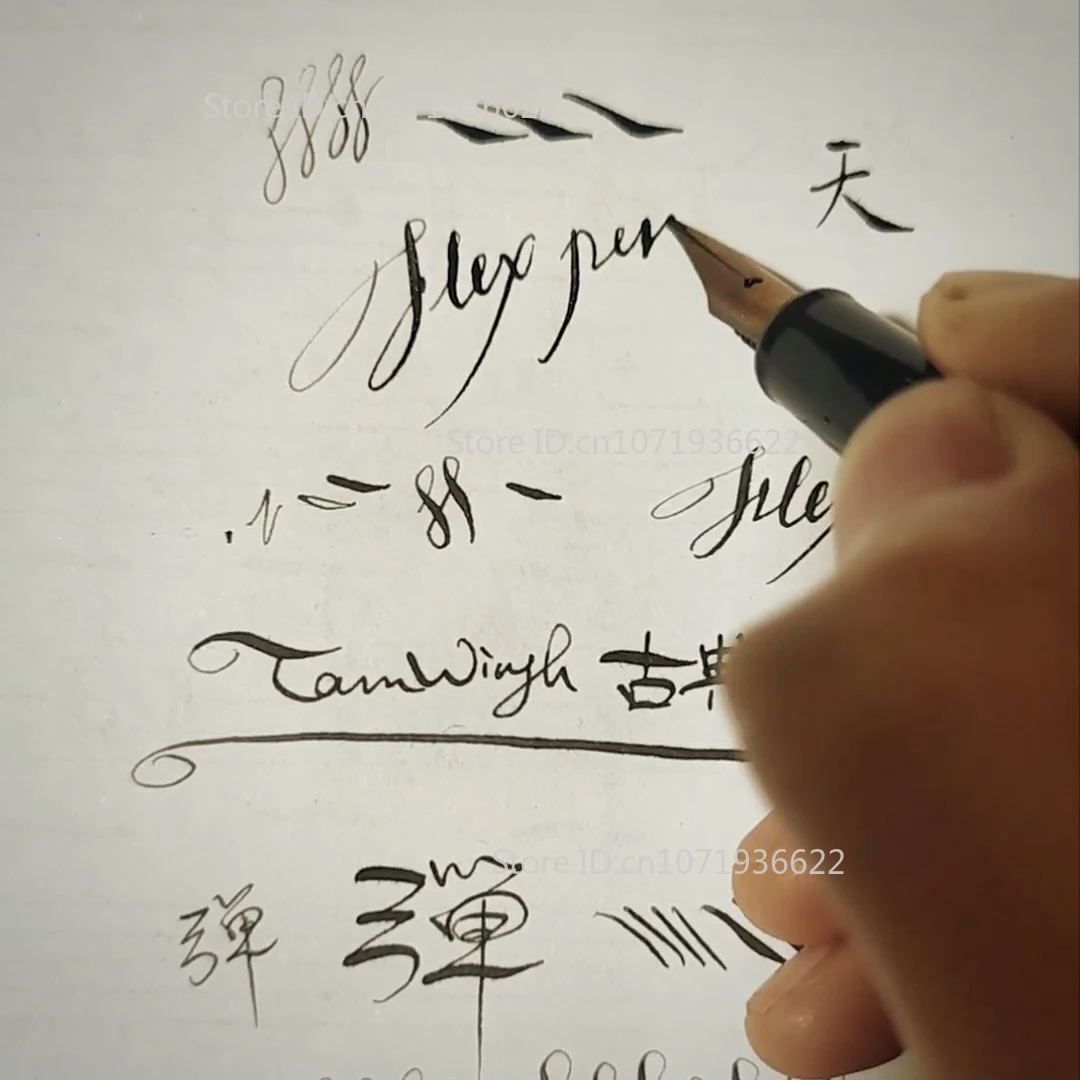 Store ID:cn1071936622
天
flex pen
Store ID:cn1071936622
fle
TamWingh 古典
Store ID:cn1071936622
彈 彈